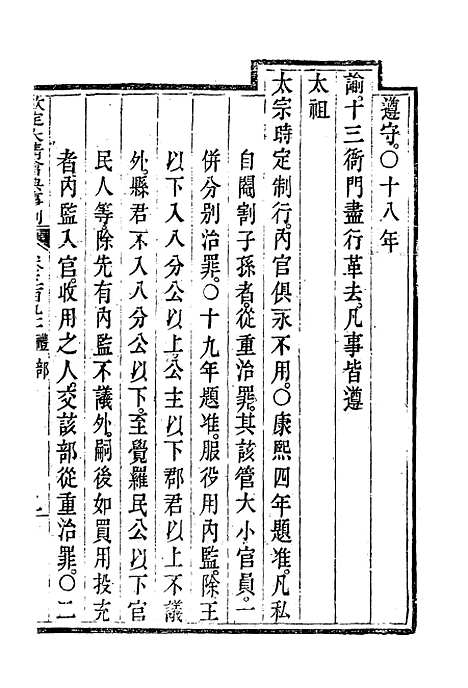 遵守。○十八年
諭。十三衙門盡行革去。凡事皆遵
太祖
太宗時定制行。內官俱永不用。○康熙四年題准。凡私
自閹割子孫者。從重治罪。其該管大小官員。一
併分別治罪。○十九年題准。服役用內監。除王
以下入八分公以上。公主以下郡君以上不議
外。縣君不入八分公以下。至覺羅民公以下官
民人等。除先有內監不議外。嗣後如買用投充
者。內監入官。收用之人。交該部從重治罪。○二
欽定大清會典事例 禮部